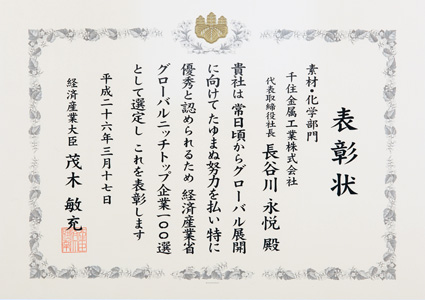 表彰状
素材・化学部門
千住金属工業株式会社
代表取締役社長 長谷川 永悦 殿
貴社は 常日頃からグローバル展開
に向けてたゆまぬ努力を払い 特に
優秀と認められるため 経済産業省
グローバルニッチトップ企業一〇〇選
として選定し これを表彰します
平成二十六年三月十七日
経済産業大臣 茂木 敏充